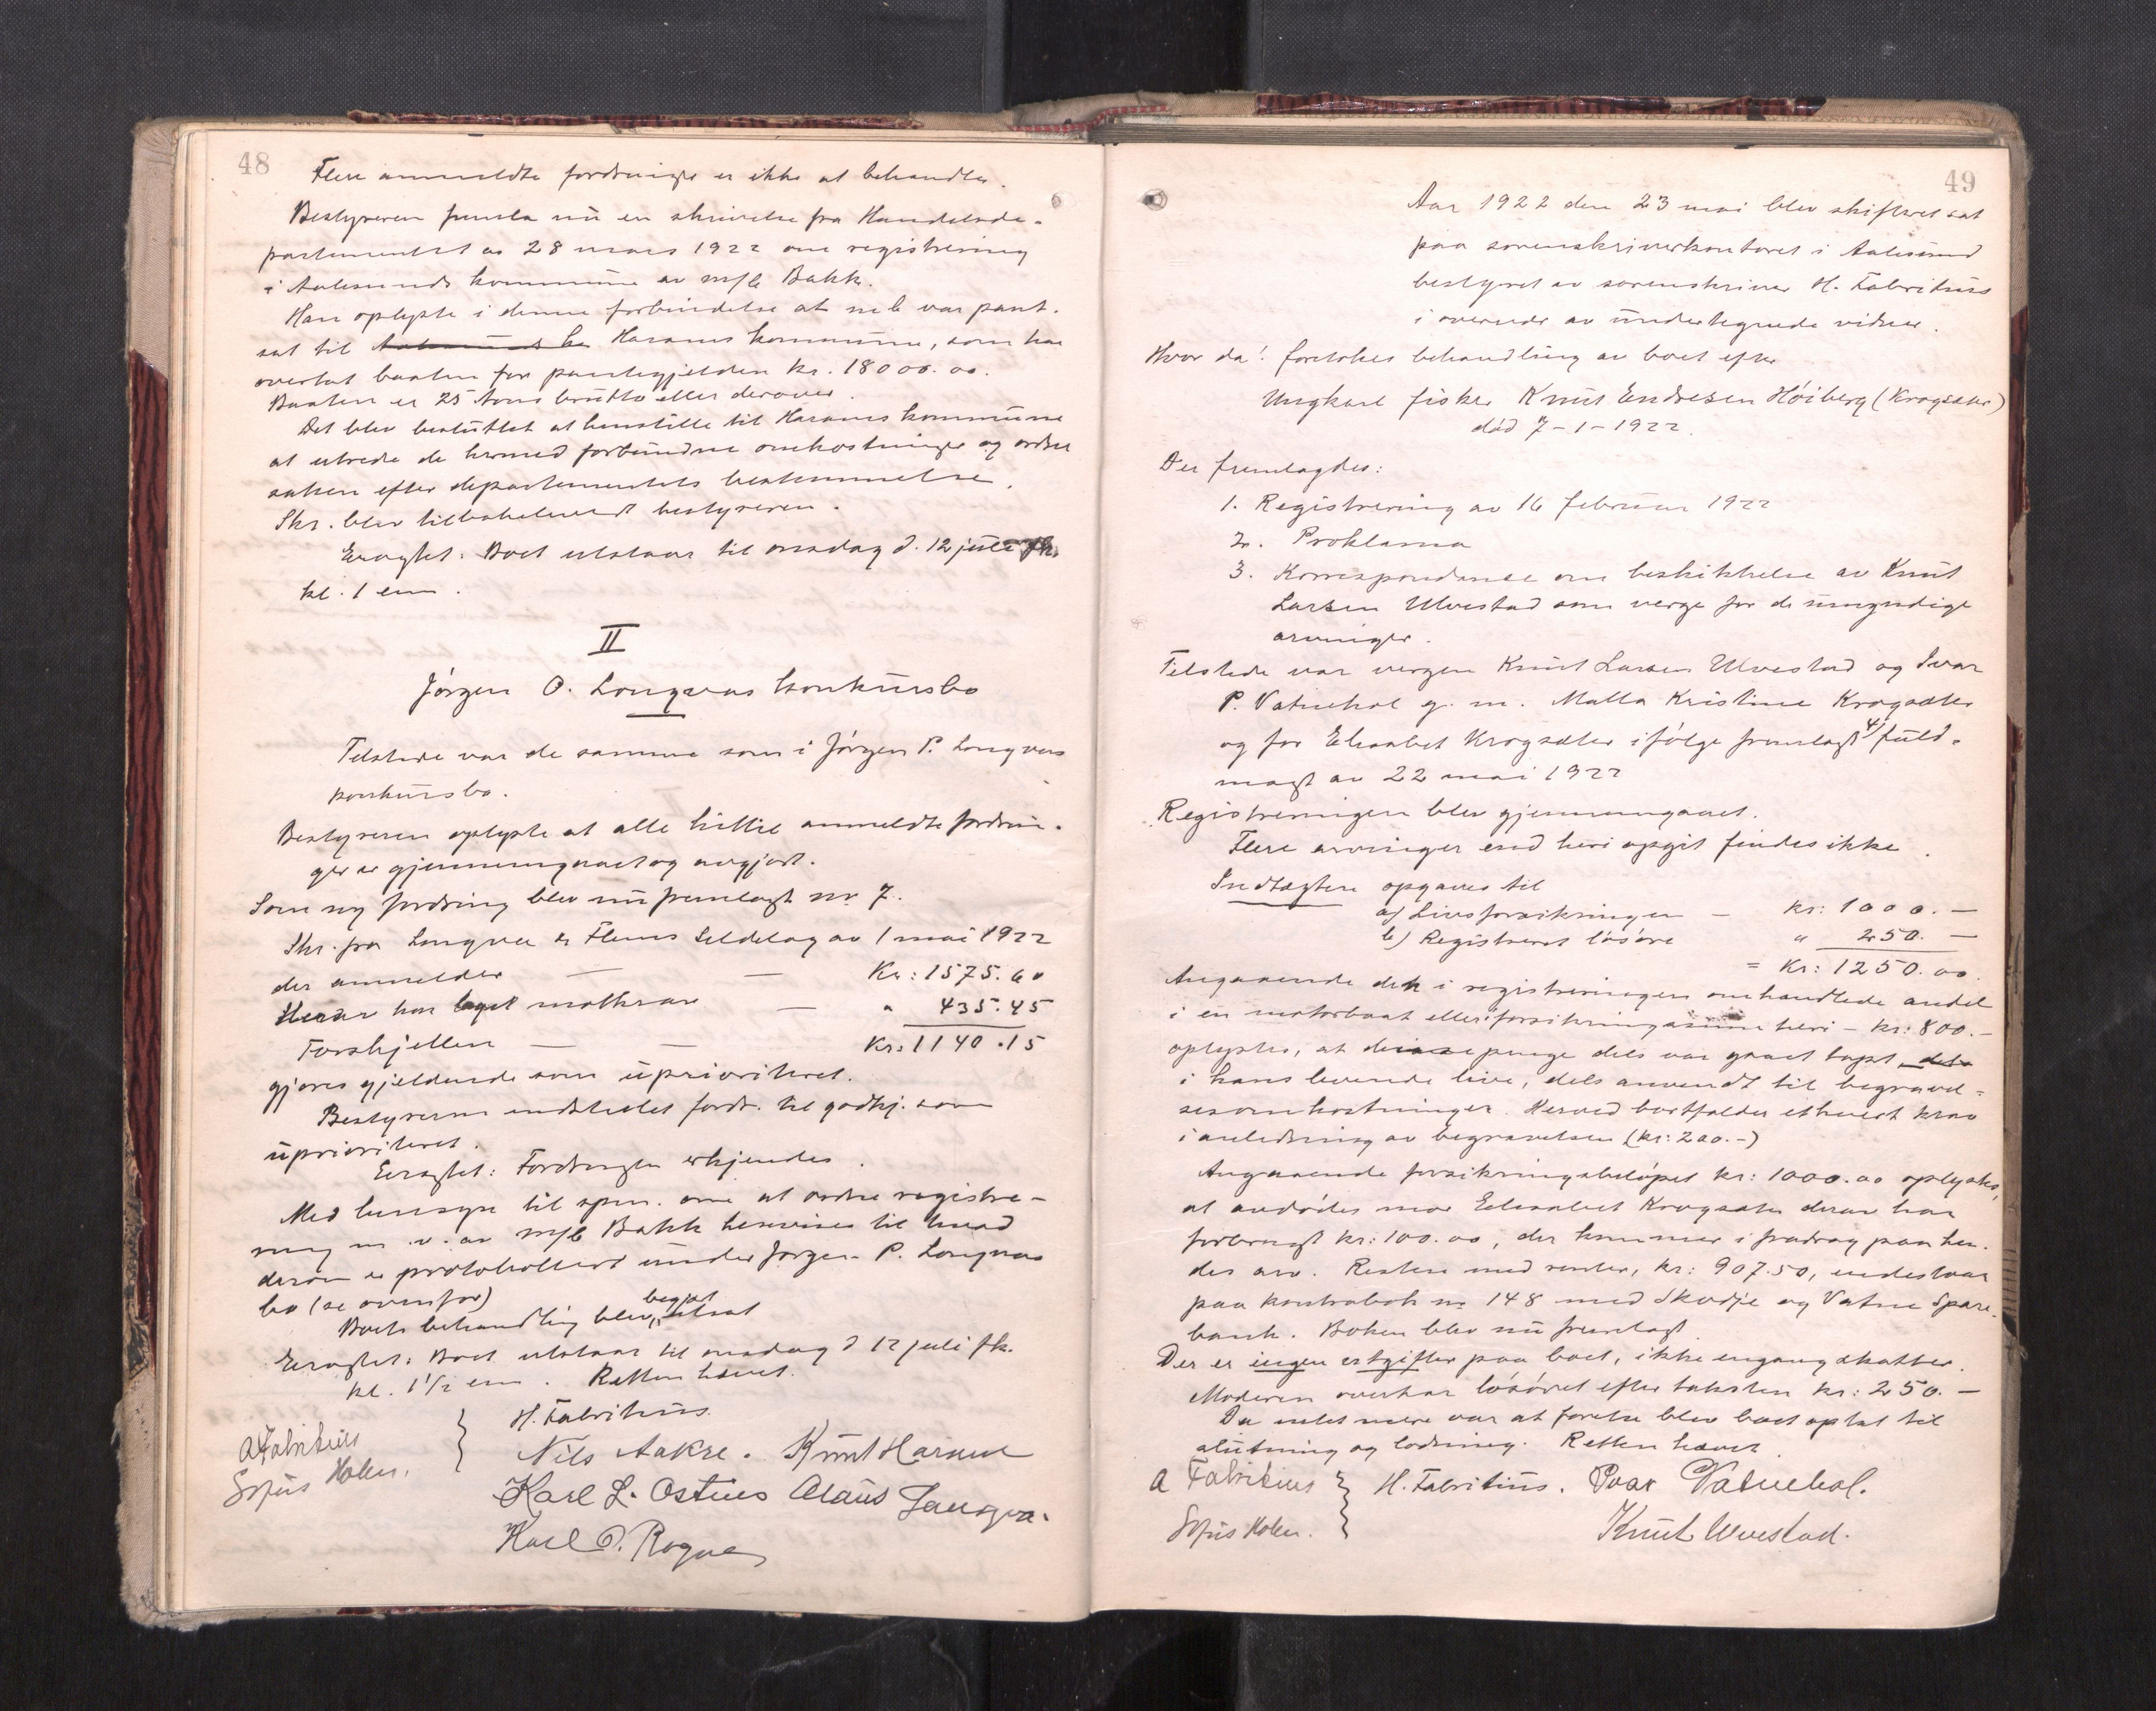 48
Flere anmeldte fordringer er ikke at behandle.
Bestyreren fremla nu en skrivelse fra Handelsde-
partementet av 28 mars 1922 om registrering
i Aalesunds kommune av m/b Bakk.
Han oplyste i denne forbindelse at m b var pant-
sat til Harams kommune, som har
overtat baaten for pantegjelden kr. 18000.00.
Baaten er 25 tons brutto eller derover.
Det blev besluttet at henstille til Harams kommune
at utrede de hermed forbundne omkostninger og ordne
saken efter departementets bestemmelse.
Skr. blev tilbakelevert bestyreren.
Eragtet: Boet utstaar til onsdag d. 12 juli fk.
kl. 1 em.
II
Jørgen O. Longvas konkursbo
Tilstede var de samme som i Jørgen P. Longvas
konkursbo.
Bestyreren oplyste at alle hittil anmeldte fordrin-
ger er gjennemgaaet og avgjort.
Som ny fordring blev nu fremlagt nr 7.
Skr. fra Longva & Flems Sildelag av 1 mai 1922
der anmelder — — Kr: 1575.60
Herav har laget motkrav — " 435.45
Forskjellen — — Kr: 1140.15
gjøres gjeldende som uprioritert.
Bestyreren indstillet fordr. til godkj. som
uprioritert.
Eragtet: Fordringen erkjendes.
Med hensyn til spm. om at ordne registre-
ring m. v. av m/b Bakk henvises til hvad
derom er protokollert under Jørgen P. Longvas
bo (se ovenfor)
Boets behandling blev begjært utsat
Eragtet: Boet utstaar til onsdag d 12 juli fk.
kl. 1 1/2 em. Retten hævet.
H. Fabritius.
A Fabritius
Sofus Holen.
Nils Aakre. Knut Haram
Karl L. Ostnes Claus Longva.
Karl O. Rogne
49
Aar 1922 den 23 mai blev skifteret sat
paa sorenskriverkontoret i Aalesund
bestyret av sorenskriver H. Fabritius
i overvær av undertegnede vidner.
Hvor da: foretokes behandling av boet efter
Ungkarl fisker Knut Endresen Høiberg (Krogsæter)
død 7-1-1922.
Der fremlagdes:
1. Registrering av 16 februar 1922
2. Proklama
3. Korrespondanse om beskikkelse av Knut
Larsen Ulvestad som verge for de umyndige
arvinger.
Tilstede var vergen Knut Larsen Ulvestad og Ivar
P. Vatnehol g. m. Malla Kristine Krogsæter
og for Elisabet Krogsæter ifølge fremlagt 4/ fuld-
magt av 22 mai 1922
Registreringen blev gjennemgaaet.
Flere arvinger end heri opgit findes ikke.
Indtægten opgaves til
a) Livsforsikringen — kr: 1000.—
b) Registreret løsøre " 250.—
= Kr: 1250.00
Angaaende den i registreringen omhandlede andel
i en motorbaat eller forsikringssum heri — kr: 800.—
oplystes, at disse penge dels var gaaet tapt, dels
i hans levende live, dels anvendt til begravel-
sesomkostninger. Herved bortfalder ethvert krav
i anledning av begravelsen (kr: 200.-)
Angaaende forsikringsbeløpet kr: 1000.00 oplystes,
at avdødes mor Elisabet Krogsæter derav har
forbrugt kr: 100.00, der kommer i fradrag paa hen-
des arv. Resten med renter, kr: 907.50, indestaar
paa kontrabok nr 148 med Skodje og Vatne Spare-
bank. Boken blev nu fremlagt.
Der er ingen utgifter paa boet, ikke engang skatter.
Moderen overtar løsøret efter taksten kr: 250.—
Da intet mere var at foreta blev boet optat til
slutning og lodning. Retten hævet.
A Fabritius
Sofus Holen.
H. Fabritius. Ivar Vatnehol.
Knut Ulvestad.